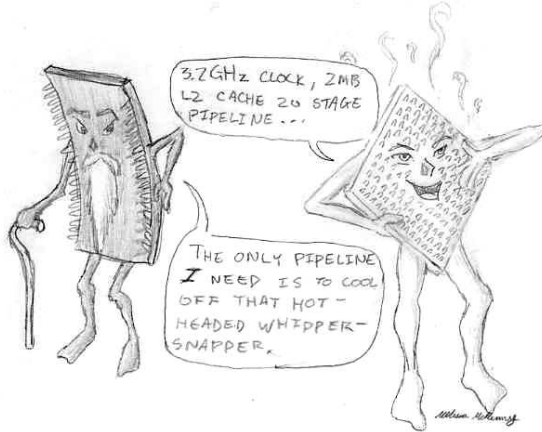 3.2GHZ CLOCK, 2MB
L2 CACHE 20 STAGE
PIPELINE...
THE ONLY PIPELINE
I NEED IS TO COOL
OFF THAT HOT-
HEADED WHIPPER-
SNAPPER.